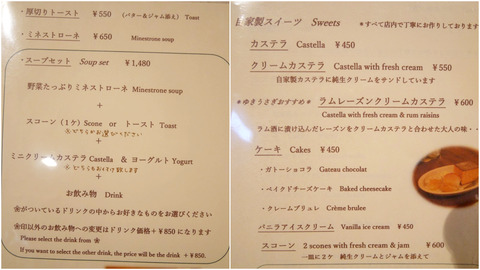 ・厚切りトースト ￥550 （バター＆ジャム添え） Toast
・ミネストローネ ￥650 Minestrone soup
・スープセット Soup set ￥1,480
野菜たっぷりミネストローネ Minestrone soup
+
スコーン（1ケ）Scone or トースト Toast
※どちらかお選びください
+
ミニクリームカステラ Castella ＆ ヨーグルト Yogurt
+
お飲み物 Drink
❀がついているドリンクの中からお好きなものをお選びください
❀印以外のお飲み物への変更はドリンク価格＋￥850 になります
Please select the drink from ❀
If you want to select the other drink, the price will be the drink ＋￥850.
自家製スイーツ Sweets ＊すべて店内で丁寧にお作りしております
カステラ Castella ￥450
クリームカステラ Castella with fresh cream ￥550
自家製カステラに純生クリームをサンドしています
＊ゆきうさぎおすすめ＊ ラムレーズンクリームカステラ ￥600
Castella with fresh cream & rum raisins
ラム酒に漬け込んだレーズンをクリームカステラと合わせた大人の味・・
ケーキ Cakes ￥450
・ガトーショコラ Gateau chocolat
・ベイクドチーズケーキ Baked cheesecake
・クレームブリュレ Crème brulee
バニラアイスクリーム Vanilla ice cream ￥450
スコーン 2 scones with fresh cream & jam ￥600
一皿に2ケ 純生クリームとジャムを添えて